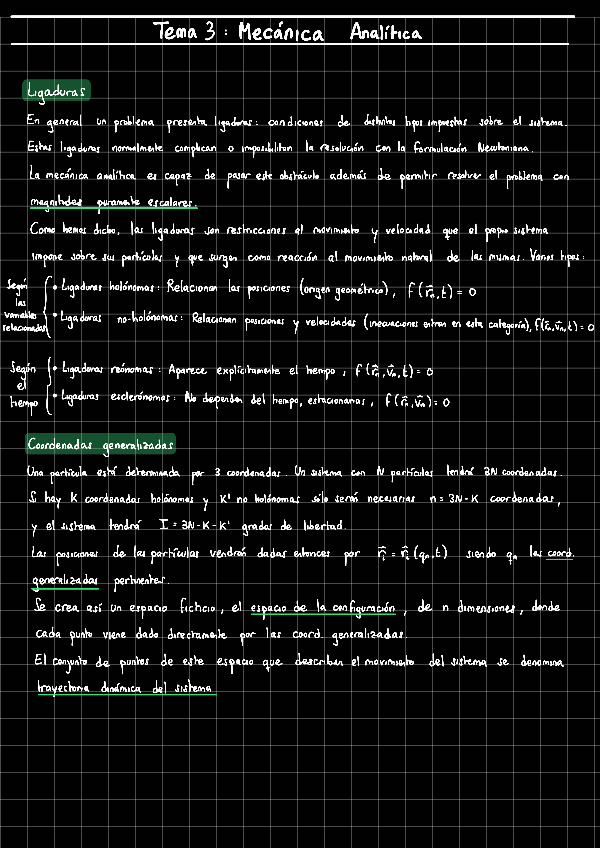 Tema 3: Mecánica Analítica
Ligaduras
En general un problema presenta ligaduras: condiciones de distintos tipos impuestas sobre el sistema.
Estas ligaduras normalmente complican o imposibilitan la resolución con la formulación Newtoniana.
La mecánica analítica es capaz de pasar este obstáculo además de permitir resolver el problema con
magnitudes puramente escalares.
Como hemos dicho, las ligaduras son restricciones al movimiento y velocidad que el propio sistema
impone sobre sus partículas y que surgen como reacción al movimiento natural de las mismas. Varios tipos:
Según las variables relacionadas
• Ligaduras holónomas: Relacionan las posiciones (origen geométrico), f(r⃗ₙ,t)=0
• Ligaduras no-holónomas: Relacionan posiciones y velocidades (inecuaciones entran en esta categoría), f(r⃗ₙ,v⃗ₙ,t)=0
Según el tiempo
• Ligaduras reónomas: Aparece explícitamente el tiempo, f(r⃗ₙ,v⃗ₙ,t)=0
• Ligaduras esclerónomas: No dependen del tiempo, estacionarias, f(r⃗ₙ,v⃗ₙ)=0
Coordenadas generalizadas
Una partícula está determinada por 3 coordenadas. Un sistema con N partículas tendrá 3N coordenadas.
Si hay K coordenadas holónomas y K' no holónomas sólo serán necesarias n=3N-K coordenadas,
y el sistema tendrá I=3N-K-K' grados de libertad.
Las posiciones de las partículas vendrán dadas entonces por r⃗ᵢ=r⃗ᵢ(qₙ,t) siendo qₙ las coord.
generalizadas pertinentes.
Se crea así un espacio ficticio, el espacio de la configuración, de n dimensiones, donde
cada punto viene dado directamente por las coord. generalizadas.
El conjunto de puntos de este espacio que describen el movimiento del sistema se denomina
trayectoria dinámica del sistema